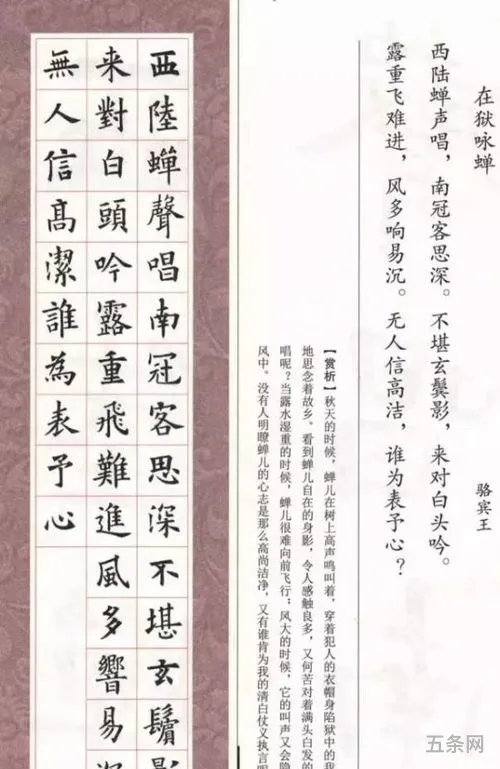 在狱咏蝉
骆宾王
西陆蝉声唱，南冠客思深。不堪玄鬓影，来对白头吟。
露重飞难进，风多响易沉。无人信高洁，谁为表予心？
【赏析】秋天的时候，蝉儿在树上高声鸣叫着，穿着犯人的衣帽身陷狱中的我
地思念着故乡。看到蝉儿自在的身影，令人感触良多，又何苦对着满头白发的
唱呢？当露水湿重的时候，蝉儿很难向前飞行；风大的时候，它的叫声又会隐
风中。没有人明瞭蝉儿的心志是那么高尚洁净，又有谁肯为我的清白仗义执言
西陸蟬聲唱南冠客思深不堪玄鬢影
来對白頭吟露重飛難進風多響易
無人信高潔誰為表予心
五条网